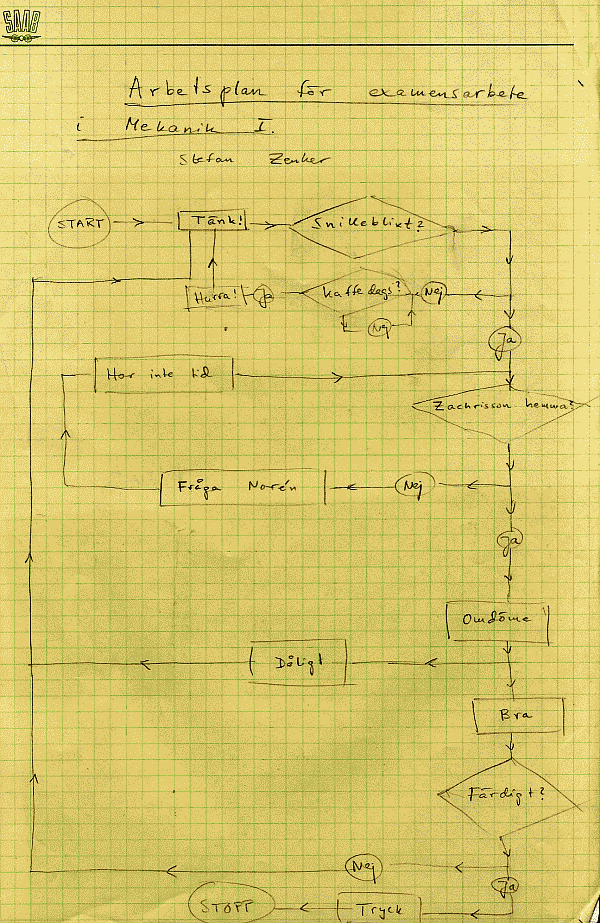 SAAB
Arbetsplan för examensarbete
i Mekanik I.
Stefan Zenker
START
Tänk!
Snilleblixt?
Hurra!
Ja
Kaffedags?
Nej
Nej
Ja
Har inte tid
Zachrisson hemma?
Fråga Norén
Nej
Ja
Omdöme
Dåligt
Bra
Färdigt?
Nej
Ja
STOPP
Tryck